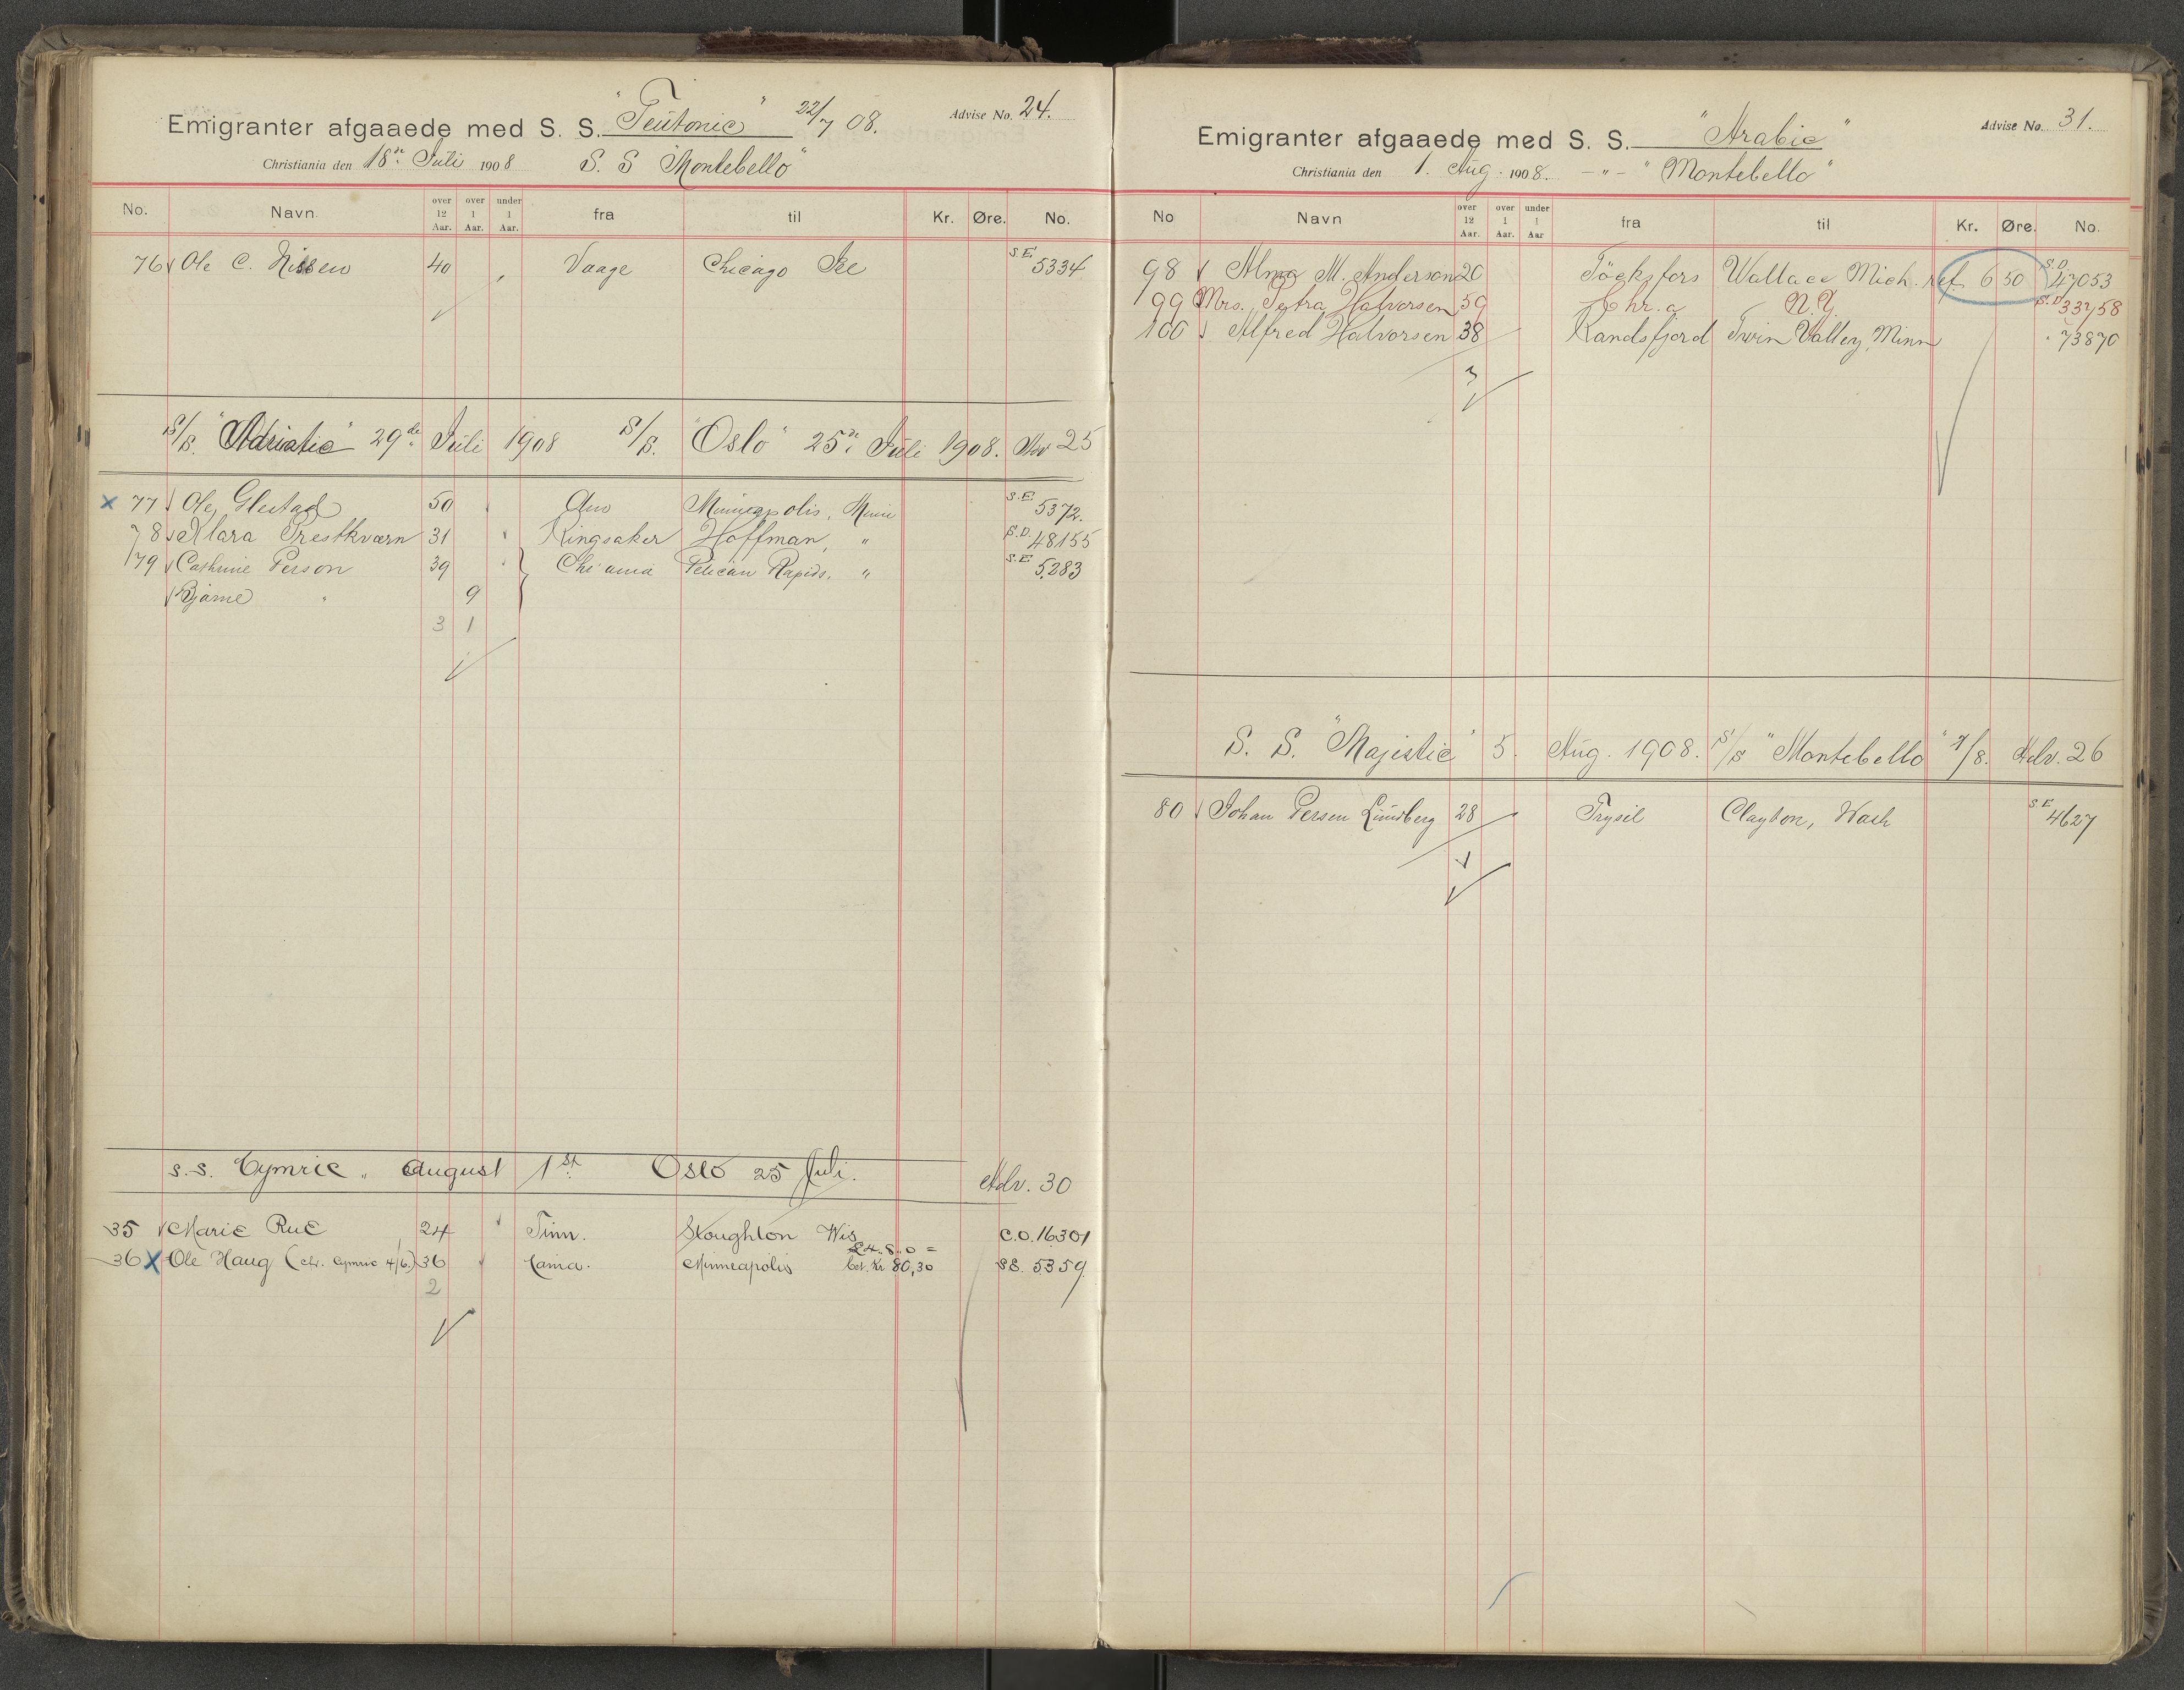 Emigranter afgaaede med S. S. "Teutonic" 22/7 08. Advise No. 24.
Christiania den 18de Juli 1908 S. S "Montebello"
No. Navn over 12 Aar. over 1 Aar. under 1 Aar. fra til Kr. Øre. No.
76 Ole C. Nissen 40 Vaage Chicago Ill S.E. 5334
S/S. "Adriatic" 29de Juli 1908 S/S. "Oslo" 25de Juli 1908. Adv 25
x 77 Ole 50 Minneapolis, Minn S.E. 5372.
78 Klara Prestkværn 31 Ringsaker Hoffman, " S.D. 48155
179 Cathrine Person 39 Chr'ania Pelican Rapids, " S.E. 5283
Bjarne " 9
3 1
S.S. Cymric " August 1st. Oslo 25 Juli. Adv. 30
35 Marie Rue 24 Tinn. Stoughton Wis C.O. 16301
£4.8.0 =
36 x Ole Haug (chr. Cymric 4/6.) 36 Xania. Minneapolis bet. Kr 80,30 SE. 5359
2
Emigranter afgaaede med S. S. "Arabic" Advise No. 31.
Christiania den 1. Aug. 1908. - " - "Montebello"
No Navn over 12 Aar. over 1 Aar. under 1 Aar fra til Kr. Øre. No.
98 Alma M. Anderson 20 Töcksfors Wallace Mich. ref. 6 50 S.D. 47053
99 Mrs. Petra Halvorsen 59 Chr.a N.Y. S.D. 33758
100 Alfred Halvorsen 38 Randsfjord Twin Valley, Minn " 73870
3
S. S. "Majestic" 5. Aug. 1908. S/S "Montebello" 1/8. Adv. 26
80 Johan Persen Lundberg 28 Trysil Clayton, Wash S.E. 4627
1